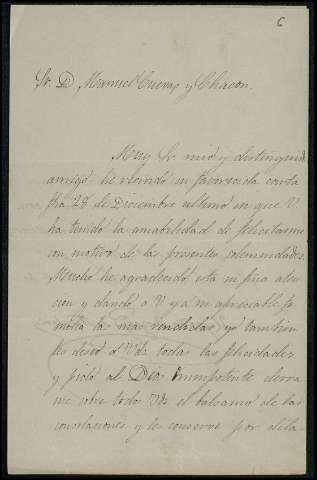 6
Sr. D. Manuel Cuevas y Chacon.
Muy Sr mio y distinguido
amigo: he recibido su favorecida carta
fha 28 de Diciembre ultimo en que V
ha tenido la amabilidad de felicitarme
con motivo de las presentes solemnidades.
Mucho he agradecido esta su fina aten
cion y dando a V y a su apreciable fa
milia las mas rendidas, yo tambien
les deseo a Vds todas las felicidades
y pido al Dios Omnipotente derra
me sobre todos Vds el balsamo de los
consolaciones y les conserve por dila